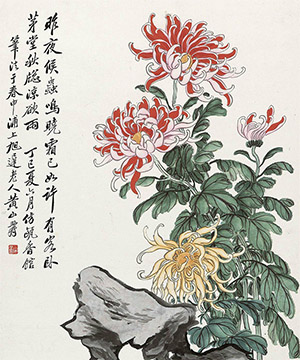 昨夜候蟲鳴曉霜已如許有客卧
茅堂秋聽涼破雨
丁巳夏六月仿甌香館
筆法于春申浦上旭道老人黄山壽